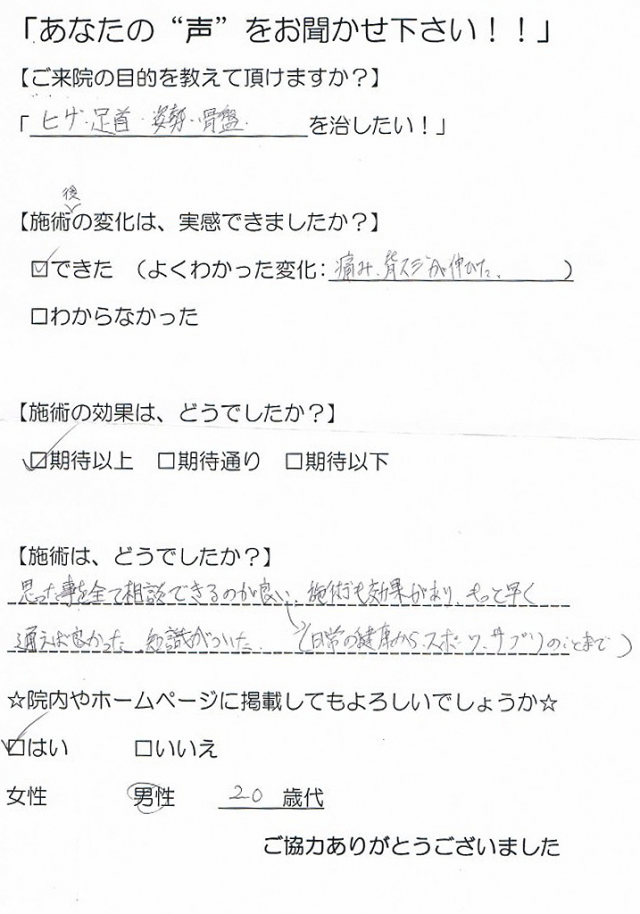 「あなたの“声”をお聞かせ下さい！！」
【ご来院の目的を教えて頂けますか？】
「ヒザ・足首・姿勢・骨盤.を治したい！」
後
【施術の変化は、実感できましたか？】
☑できた （よくわかった変化：痛み、背スジが伸びた。）
□わからなかった
【施術の効果は、どうでしたか？】
☑期待以上 □期待通り □期待以下
【施術は、どうでしたか？】
思った事を全て相談できるのが良い。施術も効果があり、もっと早く
通えば良かった。知識がついた。（日常の健康から、スポーツ、サプリのことまで）
☆院内やホームページに掲載してもよろしいでしょうか☆
☑はい □いいえ
女性 男性 20 歳代
ご協力ありがとうございました